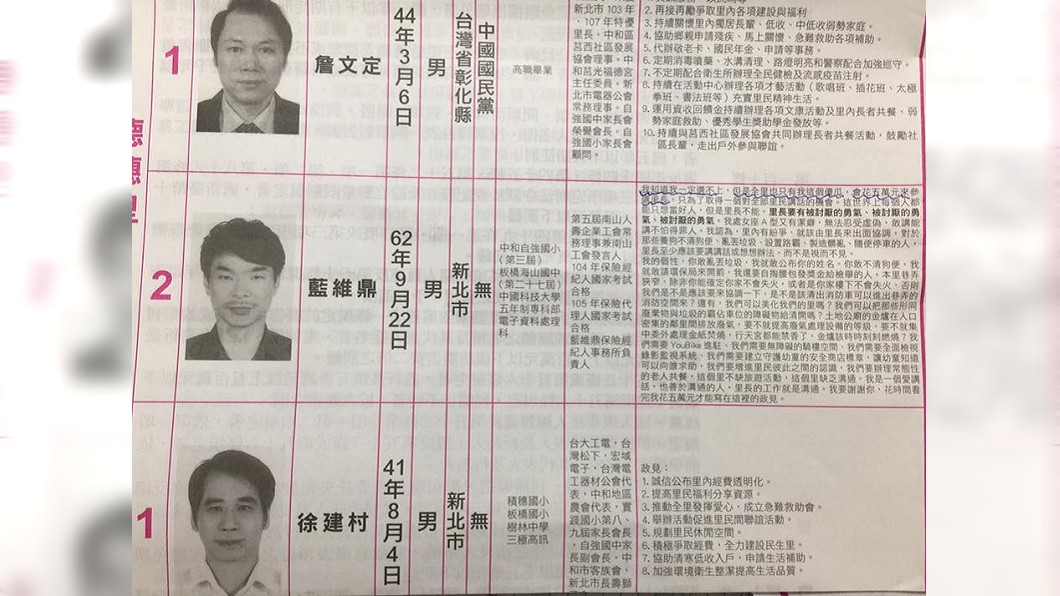 德穗里
1
詹文定
44年3月6日
男
台灣省彰化縣
中國國民黨
高職畢業
新北市103年
、107年特優
里長。中和區
莒西社區發展
協會理事。中
和莒光福德宮
主任委員。新
北市電器公會
常務理事。自
強國中家長會
榮譽會長。自
強國小家長會
顧問。
2.再接再勵爭取里內各項建設與福利
3.持續關懷里內獨居長輩、低收、中低收弱勢家庭。
4.協助鄉親申請殘疾、馬上關懷、急難救助各項補助。
5.代辦敬老卡、國民年金、申請等事務。
6.定期消毒噴藥、水溝清理、路燈明亮和警察配合加強巡守。
7.不定期配合衛生所辦理全民健檢及流感疫苗注射。
8.持續在活動中心辦理各項才藝活動（歌唱班、插花班、太極
拳班、書法班等）充實里民精神生活。
9.運用資收回饋金持續辦理各項文康活動及里內長者共餐、弱
勢家庭救助、優秀學生獎助學金發放等。
10.持續與莒西社區發展協會共同辦理長者共餐活動，鼓勵社
區長輩，走出戶外參與聯誼。
2
藍維鼎
62年9月22日
男
新北市
無
中和自強國小
（第三屆）
板橋海山國中
（第二十七屆）
中國科技大學
五年制專科部
電子資料處理
科
第五屆南山人
壽企業工會常
務理事兼南山
工會發言人
104年保險經
紀人國家考試
合格
105年保險代
理人國家考試
合格
藍維鼎保險經
紀人事務所負
責人
我知道我一定選不上，但是全里也只有我這個傻瓜，會花五萬元來參
，只為了取得一個對全部里民講話的機會。這世界上每個人都
能只想當好人，但是里長不能，里長要有被討厭的勇氣、被討厭的勇
氣、被討厭的勇氣。我處女座A型又有潔癖，無法忍受虛偽，敢講能
講不怕得罪人。我認為，里內有紛爭，就該由里長來出面協調，對於
那些養狗不清狗便、亂丟垃圾、設置路霸、製造髒亂、隨便停車的人，
里長至少應該要講講話或想想辦法，而不是視而不見。
我的個性，你敢亂丟垃圾，我就敢公布你的姓名，你敢不清狗便，我
就敢請環保局來開罰，我還要自掏腰包發獎金給檢舉的人。本里巷弄
狹窄，除非你能確定你家不會失火，或者是你家樓下不會失火，否則
我們是不是應該要來協調一下，是不是該清出消防車可以進出巷弄的
消防空間來？還有，我們可以美化我們的里嗎？我們可以把那些形同
廢棄物與垃圾的霸佔車位的障礙物給清開嗎？土地公廟的金爐在人口
密集的鄰里間排放廢氣，要不就提高廢氣處理設備的等級，要不就集
中委外處理金紙焚燒，行天宮都能禁香了，金爐該時時刻刻燃燒？我
們需要YouBike進駐、我們需要無障礙的騎樓空間、我們需要全面檢視
錄影監視系統、我們需要建立守護幼童的安全商店標章，讓幼童知道
可以向誰求助，我們要增進里民彼此之間的認識，我們要辦理常態性
的老人共餐，這個里不缺旅遊活動，這個里缺乏溝通，我是一個愛講
話，也善於溝通的人，里長的工作就是溝通。我要謝謝你，花時間看
完我花五萬元才能寫在這裡的政見。
1
徐建村
41年8月4日
男
新北市
無
積穗國小
板橋國小
樹林中學
三極高訊
台大工電，台
灣松下，宏域
電子，台灣電
工器材公會代
表，中和地區
農會代表，實
踐國小第八、
九屆家長會長
，自強國中家
長副會長，中
和市客族會，
新北市長壽獅
政見：
1.誠信公布里內經費透明化。
2.提高里民福利分享資源。
3.推動全里發揮愛心，成立急難救助會。
4.舉辦活動促進里民間聯誼活動。
5.規劃里民休閒空間。
6.積極爭取經費，全力建設民生里。
7.協助清寒低收入戶，申請生活補助。
8.加強環境衛生整潔提高生活品質。